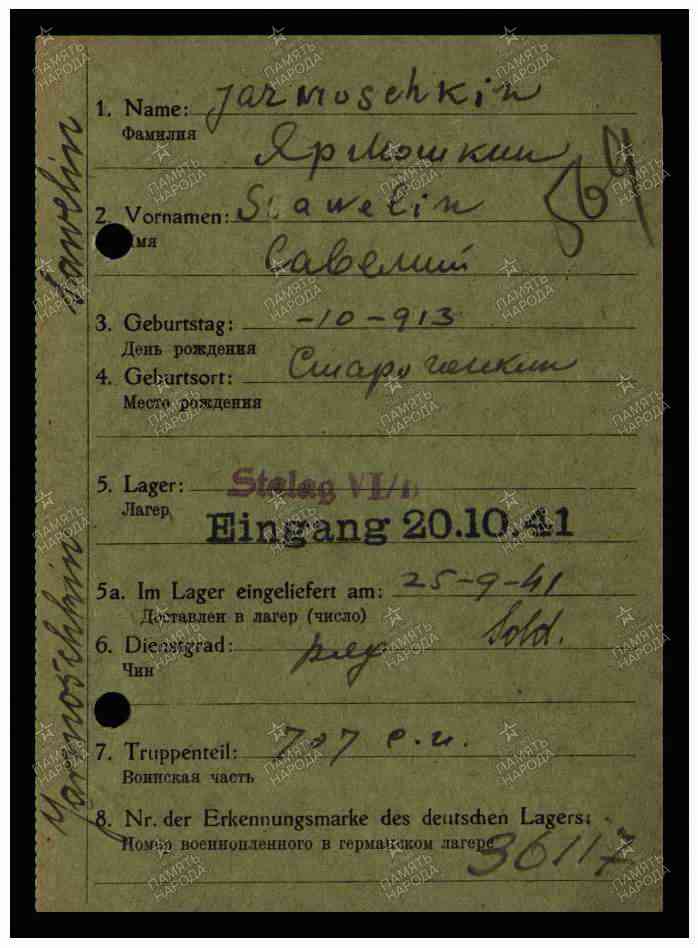 1. Name: Jarmoschkin
Фамилия
Ярмошкин
2. Vornamen: Sawelin
Имя
Савелий
3. Geburtstag: -10-913
День рождения
4. Geburtsort:
Место рождения
5. Lager: Stalag VI/
Лагер
Eingang 20.10.41
5a. Im Lager eingeliefert am: 25-9-41
Доставлен в лагер (число)
6. Dienstgrad: ряд Sold.
Чин
7. Truppenteil: 707 с.п.
Воинская часть
8. Nr. der Erkennungsmarke des deutschen Lagers:
Номер военнопленного в германском лагере
36117
Jarmoschkin Sawelin
ПАМЯТЬ
НАРОДА